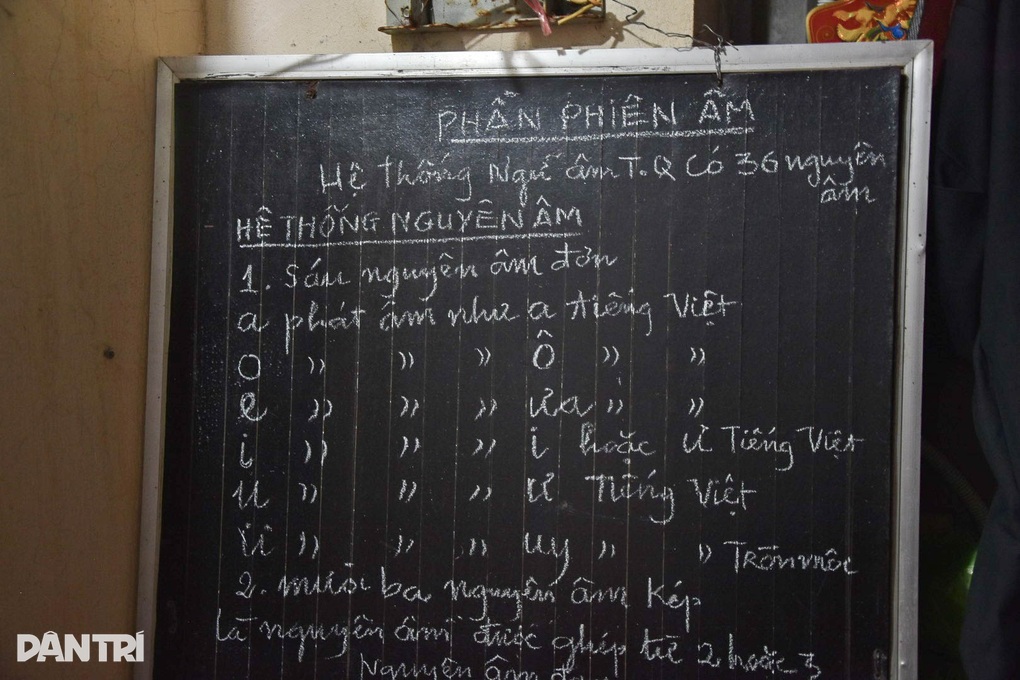 PHẦN PHIÊN ÂM
Hệ thống Ngữ âm T.Q Có 36 nguyên
âm
HỆ THỐNG NGUYÊN ÂM
1. Sáu nguyên âm đơn
a phát âm như a tiếng Việt
o " " " Ô " "
e " " " ưa " "
i " " " i hoặc ư Tiếng Việt
u " " " ư Tiếng Việt
ü " " " uy " " Tròn môi
2. mười ba nguyên âm kép
là nguyên âm được ghép từ 2 hoặc 3
Nguyên âm đơn
DÂN TRÍ